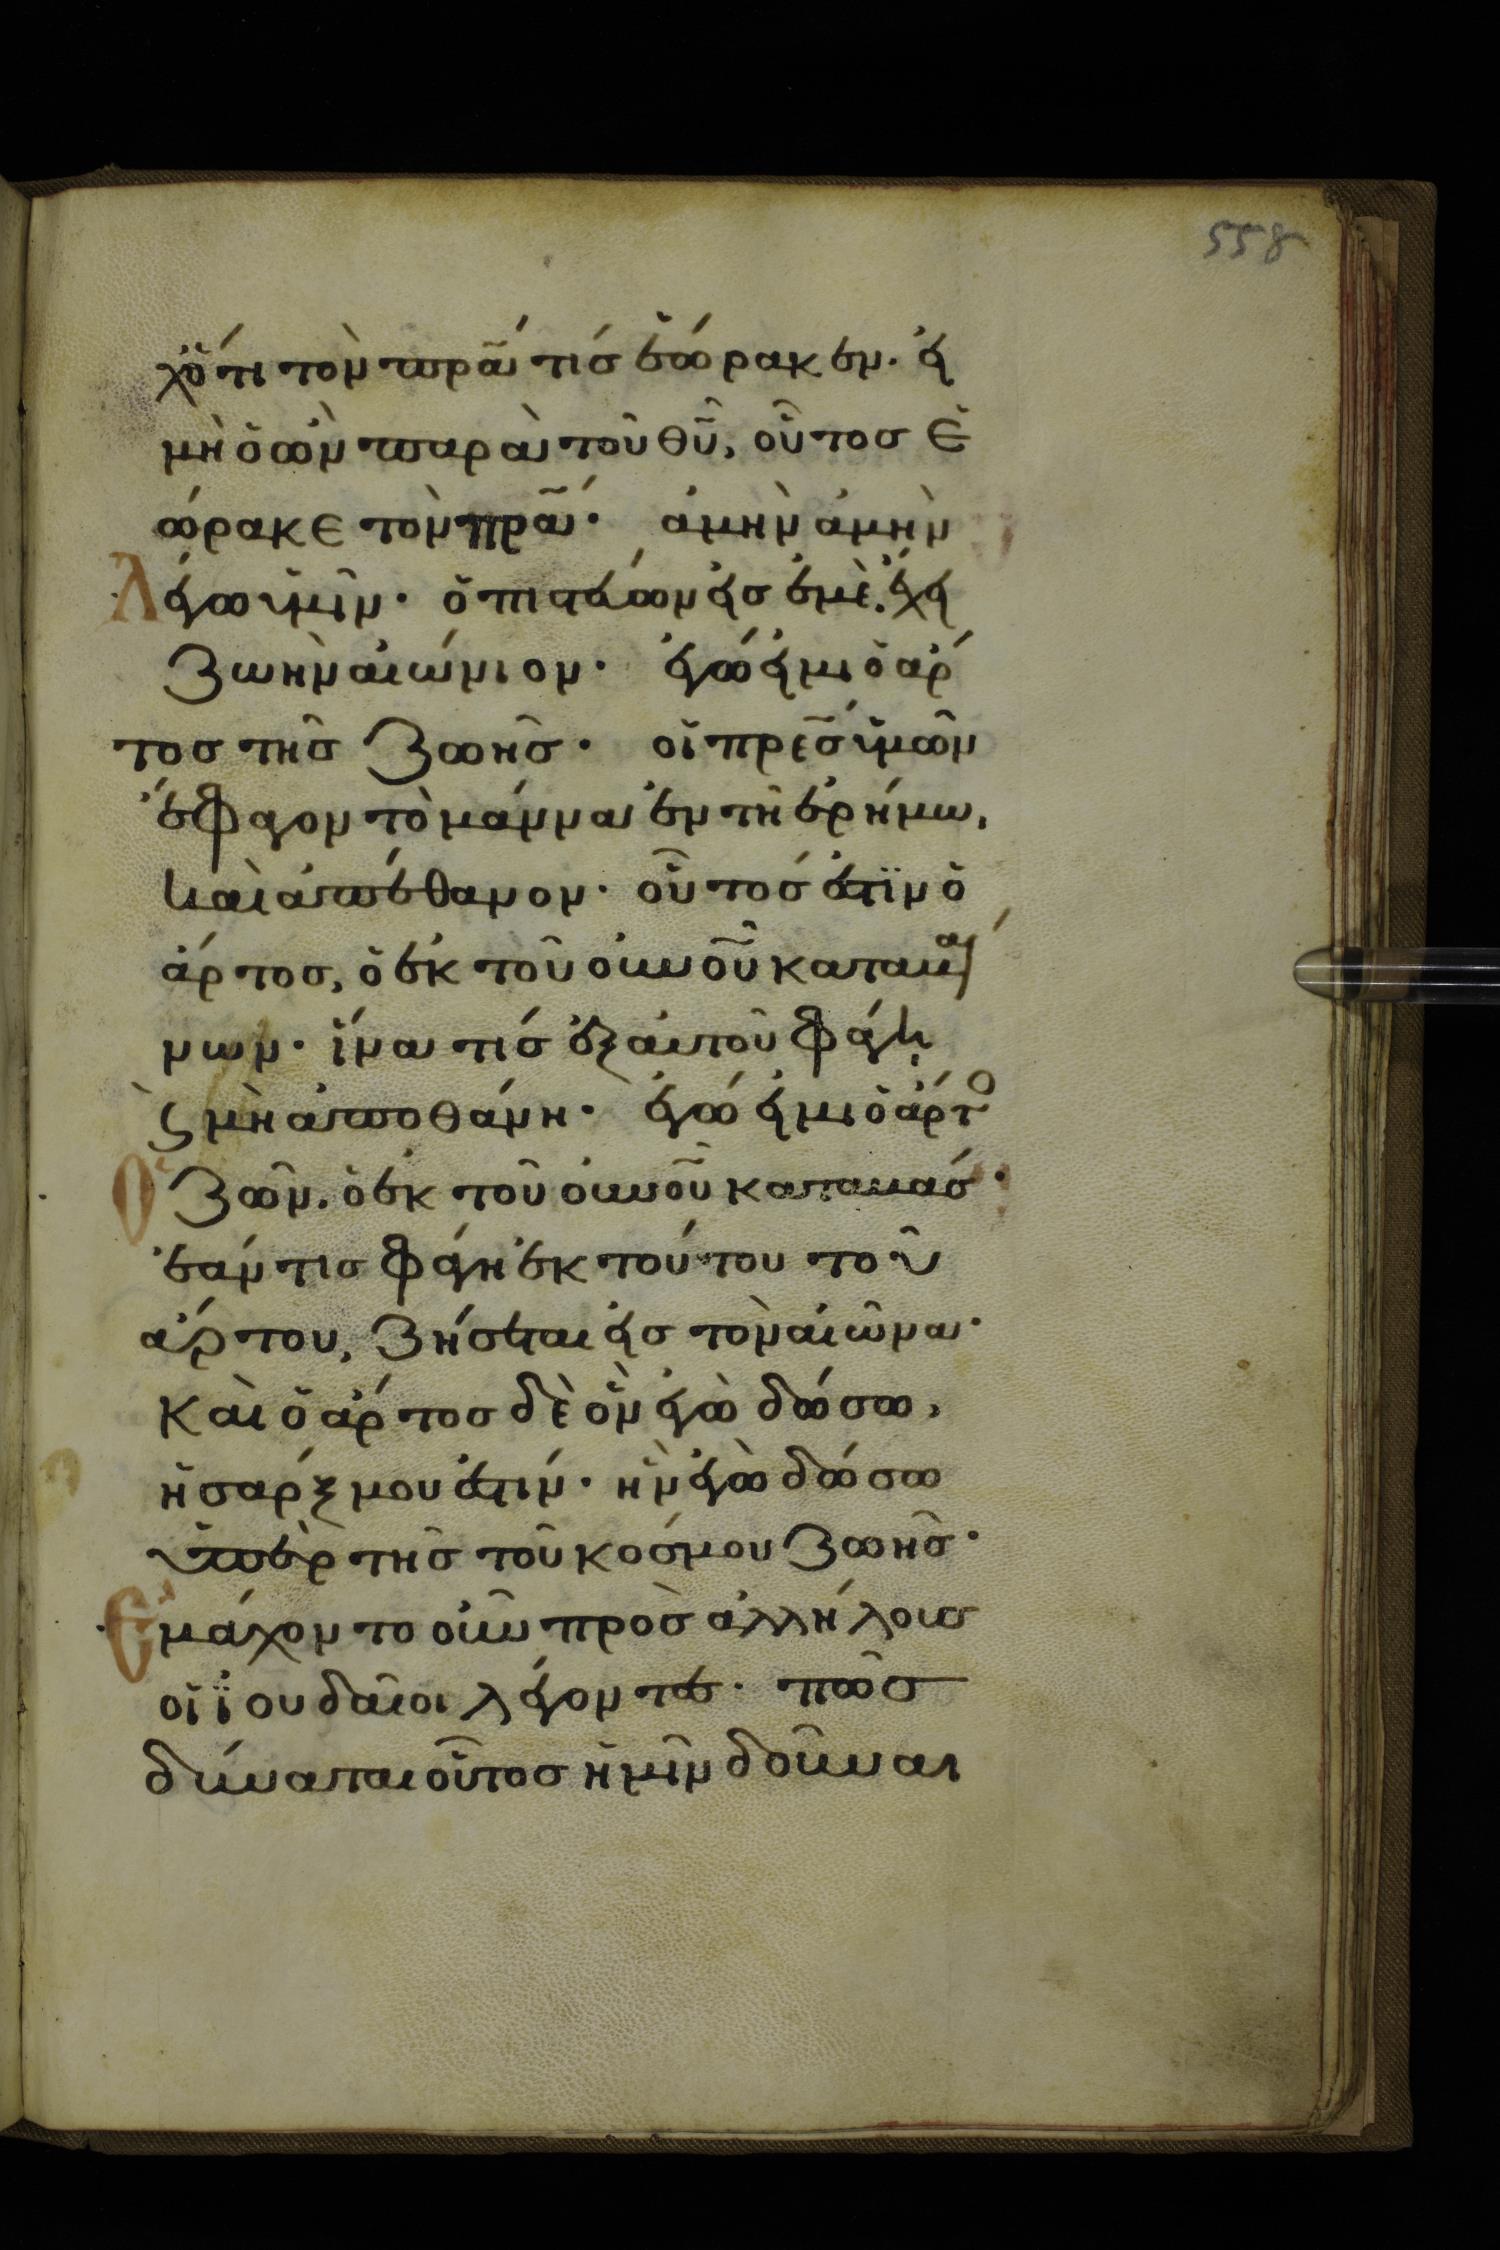 558
χ ὅτι τὸν πρα̅ τίς ἑώρακεν. εἰ
μὴ ὁ ὢν παρὰ τοῦ θυ̅, οὗτος ἑ
ώρακε τὸν πρα̅· ἀμὴν ἀμὴν
λέγω ὑμῖν· ὁ πιστεύων εἰς ἐμὲ, ἔχει
ζωὴν αἰώνιον· ἐγώ εἰμι ὁ ἄρ
τος τῆς ζωῆς· οἱ πρε̅ς ὑμῶν
ἔφαγον τὸ μάννα ἐν τῆ ἐρήμω,
καὶ ἀπέθανον· οὗτός ἐστϊν ὁ
ἄρτος, ὁ ἐκ τοῦ οὐνοῦ καταβαί
νων· ἵνα τίς ἐξ αὐτοῦ φάγη
ϛ μὴ ἀποθάνη· ἐγώ εἰμι ὁ ἄρτο
Ὁ ζῶν. ὁ ἐκ τοῦ οὐνοῦ καταβάς·
ἐάν τις φάγη ἐκ τούτου τοῦ
ἄρτου, ζήσεται εἰς τὸν αἰῶνα·
Καὶ ὁ ἄρτος δὲ ὃν ἐγὼ δώσω,
ἡ σάρξ μου ἐστίν· ἣν ἐγὼ δώσω
ὑπὲρ τῆς τοῦ κόσμου ζωῆς·
Ἐμάχοντο οὖν πρὸς ἀλλήλους
οἱ ἰουδαῖοι λέγοντες· πῶς
δύναται οὗτος ἡμῖν δοῦναι